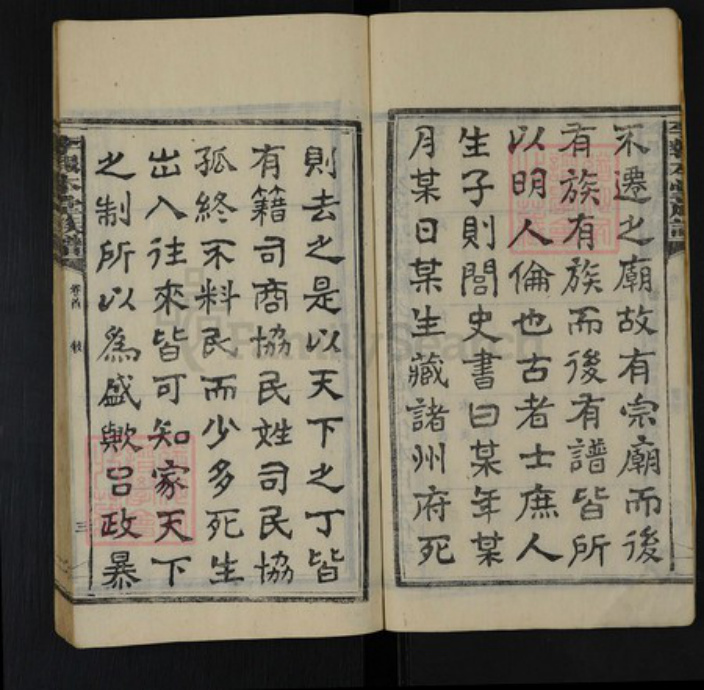 不遷之廟故有宗廟而後
有族有族而後有譜皆所
以明人倫也古者士庶人
生子則閭史書曰某年某
月某日某生藏諸州府死
則去之是以天下之丁皆
有籍司商協民姓司民協
孤終不料民而少多死生
出入往來皆可知家天下
之制所以爲盛歟呂政暴
卷首
三
FamilySearch